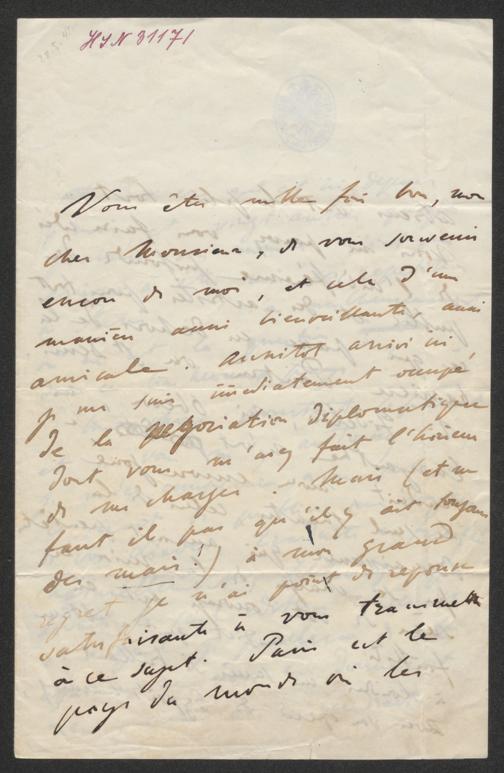 HIN 81171
Vous êtes mille fois bon, mon
cher Monsieur, de vous souvenir
encore de moi, et cela d'une
manière aussi bienveillante, aussi
amicale. Aussitot arrivé ici,
je me suis immediatement occupé
de la negociation diplomatique
dont vous m'avez fait l'honneur
de me charger. Mais (et ne
faut il pas qu'il y ait toujours
des mais!) à mon grand
regret je n'ai point de reponse
satisfaisante à vous transmettre
à ce sujet. Paris est le
pays du monde où les